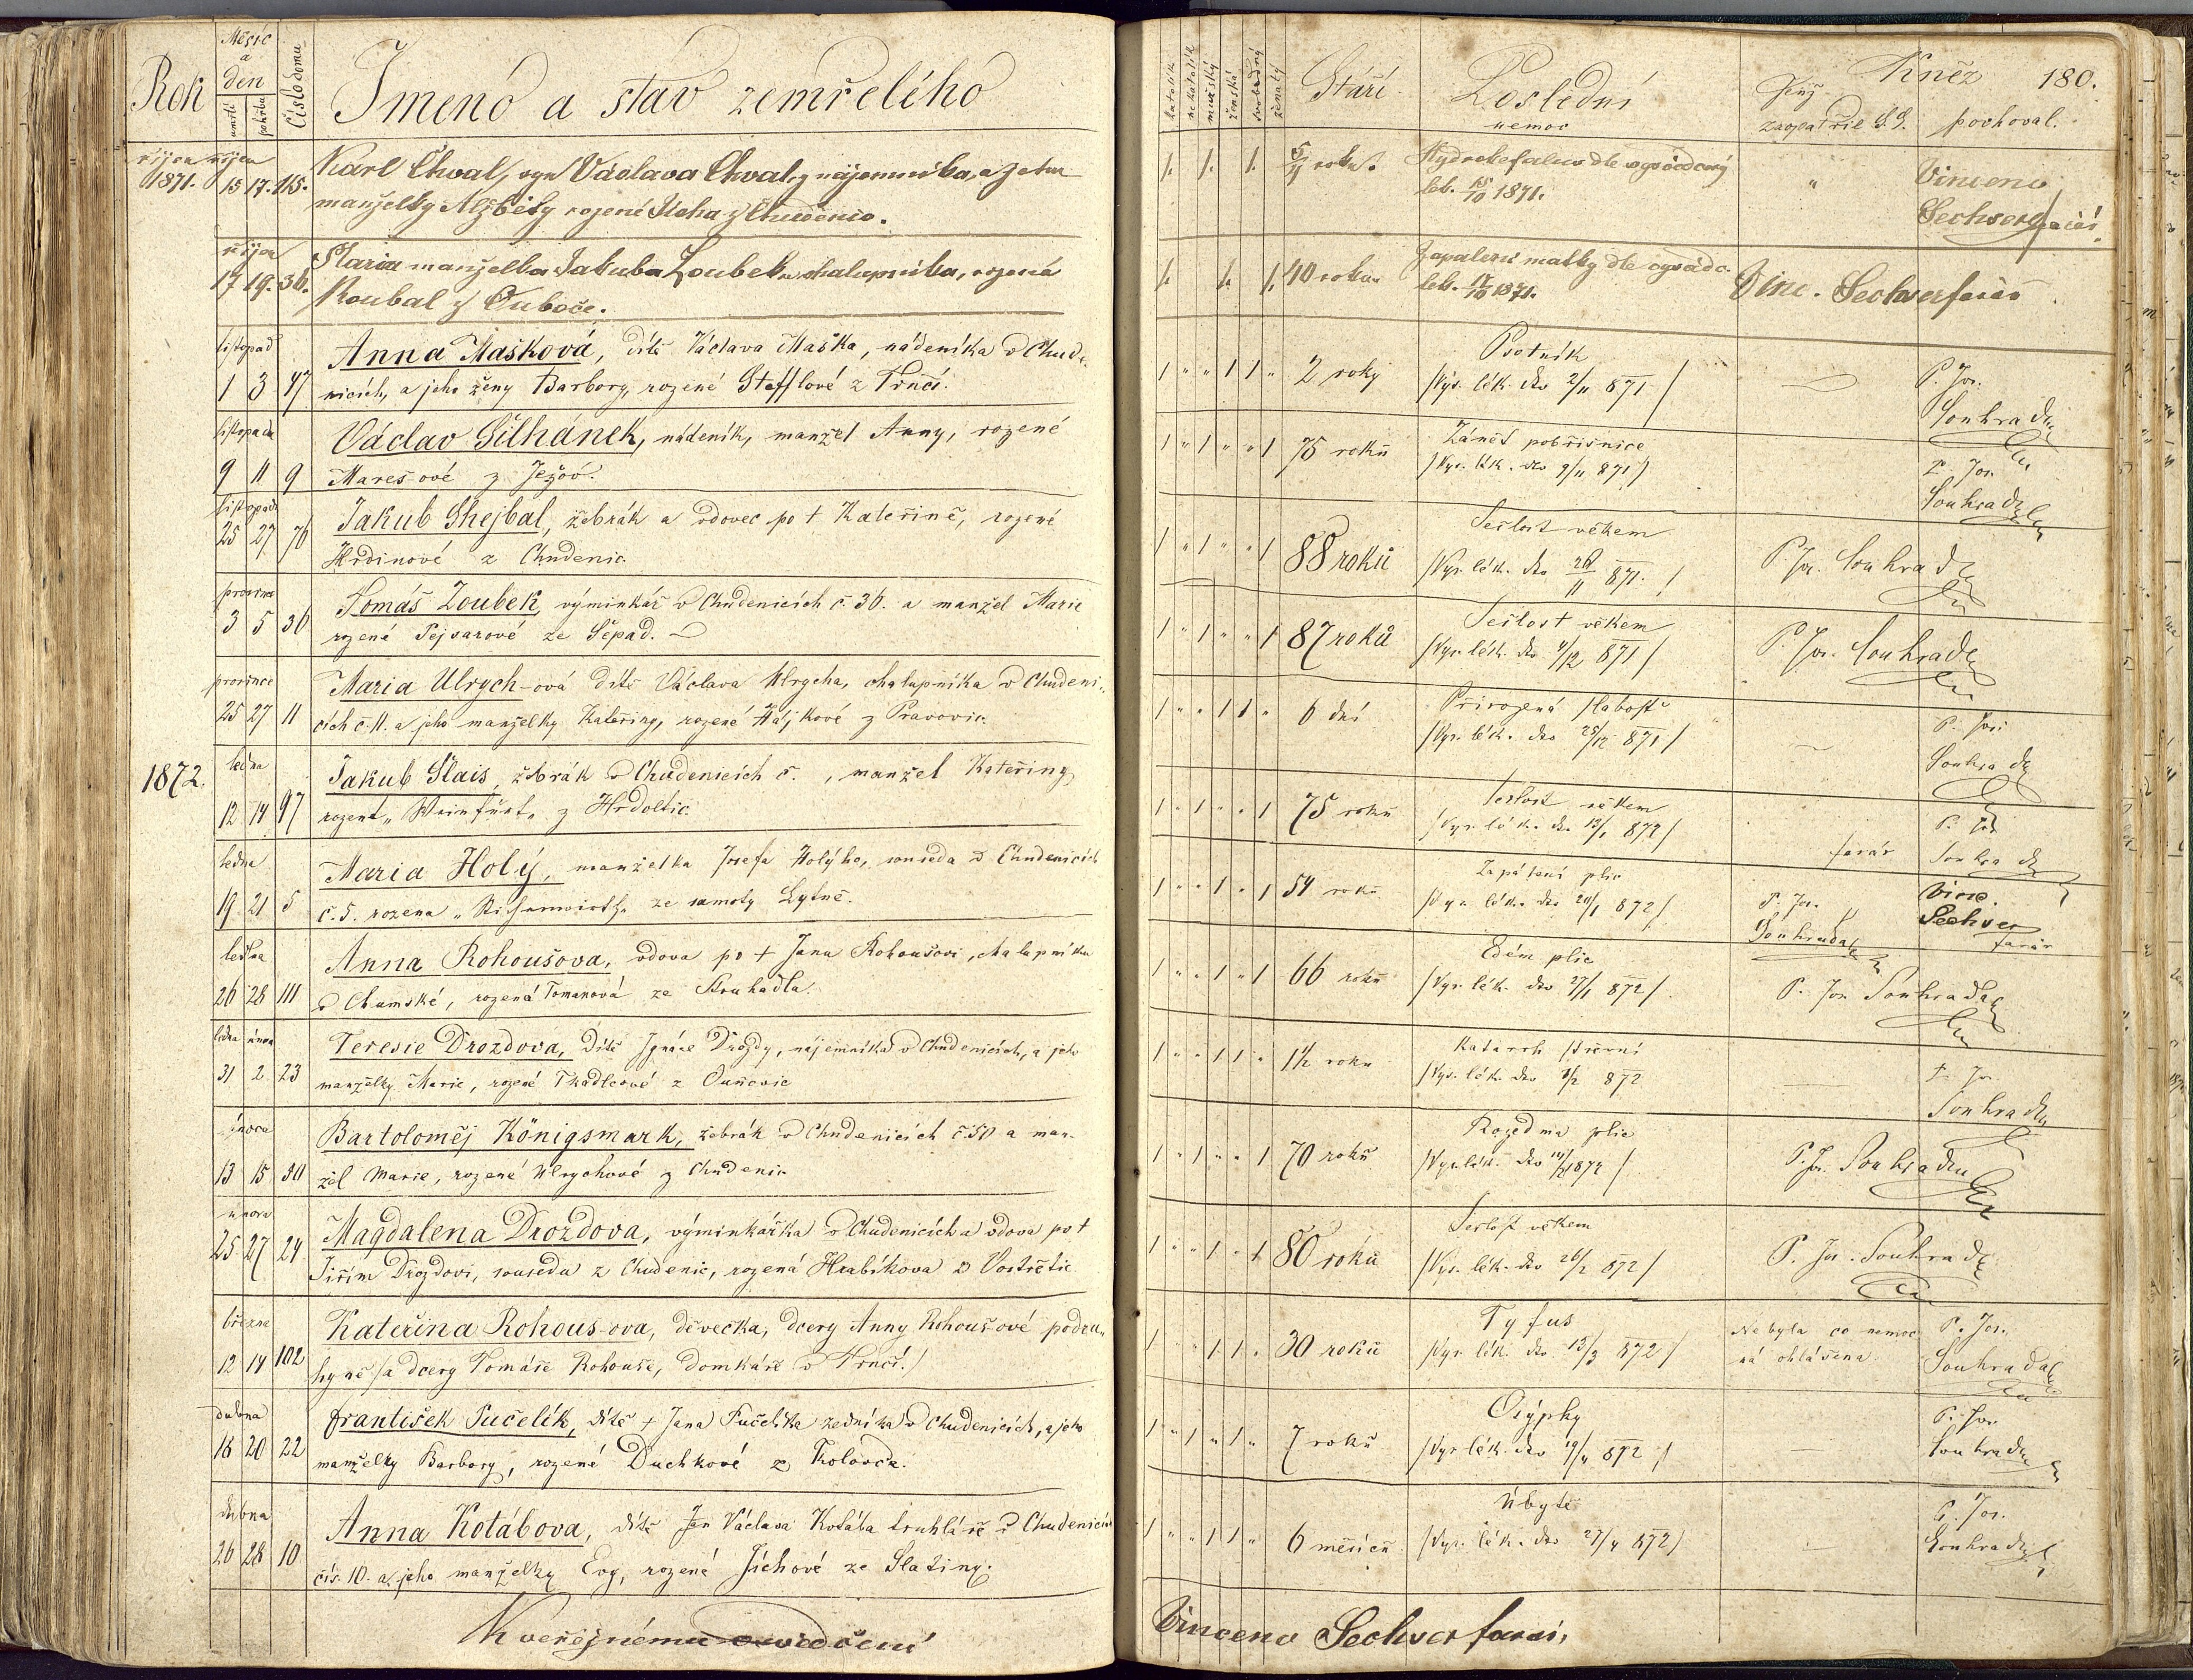 Rok
Měsíc
a
den
umrtí
pohřbu
Číslo domu
Jmeno a stav zemřelého
října října
1871. 15 17. 115.
Karl Chval, syn Václava Chvaly nájemníka, a jeho
manželky Alžběty rozené Jícha z Chudenic.
října
17 19. 36.
Maria manželka Jakuba Zoubek chalupníka, rozená
Roubal z Ouboče.
listopad
1 3 47
Anna Mašková, dítě Václava Maška, nádeníka v Chude-
nicích, a jeho ženy Barbory, rozené Stefflové z Trnčí.
listopada
9 11 9
Václav Šilhánek, nádeník, manžel Anny, rozené
Mareš-ové z Ježov.
listopadu
25 27 76
Jakub Shejbal, žebrák a vdovec po + Kateřině, rozené
Hrdinové z Chudenic.
prosince
3 5 36
Tomáš Zoubek, výminkář v Chudenicích č. 36. a manžel Marie
rozené Pejsarové ze Sepad.
prosince
25 27 11
Maria Ulrych-ová dítě Václava Ulrycha, chalupníka v Chudeni-
cích č. 11. a jeho manželky Kateřiny, rozené Hájkové z Pravovic.
1872.
ledna
12 14 97
Jakub Slais, žebrák v Chudenicích č. , manžel Kateřiny,
rozené „ Weinfürt „ z Hrdoltic.
ledna
19 21 5
Maria Holý, manželka Josefa Holýho, souseda v Chudenicích
č. 5. rozena ze samoty Lytně.
ledna
26 28 111
Anna Rohoušova, vdova po + Janu Rohoušovi, chalupníku
v Chumské, rozená Tomanová ze Struhadla.
ledna února
31 2 23
Teresie Drozdova, dítě Ignáce Drozdy, nájemníka v Chudenicích, a jeho
manželky Marie, rozené Tkadlcové z Ouněovic
února
13 15 50
Bartoloměj Königsmark, žebrák v Chudenicích č. 50 a man-
žel Marie, rozené Ulrychové z Chudenic
února
25 27 24
Magdalena Drozdova, výminkářka v Chudenicích a vdova po +
Jiřím Drozdovi, sousedu z Chudenic, rozená Hrabíkova z Vostřetic
března
12 14 102
Kateřina Rohous-ova, děvečka, dcery Anny Rohouš-ové podru-
hyně /a dcery Tomáše Rohouše, domkáře v Trnčí./
dubna
18 20 22
František Tučelík, dítě + Jana Tučelíka zedníka v Chudenicích, a jeho
manželky Barbory, rozené Duchkové z Kolovče.
dubna
26 28 10
Anna Kotábova, dítě Jan Václava Kotába truhláře v Chudenicích
čís. 10. a jeho manželky Evy, rozené Jíchové ze Slatiny.
K veřejnému osvědčení
katolík
nekatolík
mužský
ženská
svobodný
ženatý
Stáří
Poslední
nemoc
Kněz
jenž
zaopatřil S.S.
pochoval.
180.
1. 1. 1. roku. Hydrokefalus dle vysvědčený
lek. 15/10 1871.
"
Vincenc
Sechser farář
1. 1. 1. 40 roku. Zapalení matky dle vysvědč.
lek. 17/10 1871.
Vinc. Sechser farář
1 " " 1 1 " 2 roky
Psotník
/Vys. lék. dto 2/11 871/
P. Jos.
Souhrada
1 " 1 " " 1 75 roků
Zánět pobřišnice
/Vys. lék. dto 9/11 871/
P. Jos.
Souhrada
1 " 1 " " 1 88 roků
Sešlost věkem
/Vys. lék. dto 26/11 871./
P. Jos. Souhrada
1 " 1 " " 1 87 roků
Sešlost věkem
/Vys. lék. dto 4/12 871/
P. Jos. Souhrada
1 " " 1 1 " 6 dní
Přirozená slabosť
/Vys. lék. dto 25/12 871/
P. Jos.
Souhrada
1 " 1 " " 1 75 roků
Sešlost věkem
/Vys. lék. dto 13/1 872/
P. Jos.
Souhrada
1 " " 1 " 1 54 roků
Zapálení plic
/Vys. lék. dto 20/1 872/
P. Jos.
Souhrada
Vinc.
Sechser
farář
farář
1 " " 1 " 1 66 roků
Edém plic
/Vys. lék. dto 27/1 872/
P. Jos. Souhrada
1 " " 1 1 " 1 1/2 roku
Katarrh střevní
/Vys. lék. dto 1/2 872
P. Jos.
Souhrada
1 " 1 " " 1 70 roků
Rozedma plic
/Vys. lék. dto 14/2 1872/
P. Jos. Souhrada
1 " " 1 " 1 80 roků
Sešlost věkem
/Vys. lék. dto 26/2 872/
P. Jos. Souhrada
1 " " 1 1 " 30 roků
Tyfus
/Vys. lék. dto 13/3 872/
Nebyla co nemoc-
ná ohlášena
P. Jos.
Souhrada
1 " 1 " 1 " 7 roků
Osýpky
/Vys. lék. dto 19/4 872/
P. Jos.
Souhrada
1 " " 1 1 " 6 měsíců
Úbytě
/Vys. lék. dto 27/4 872/
P. Jos.
Souhrada
Vincenc Sechser farář,